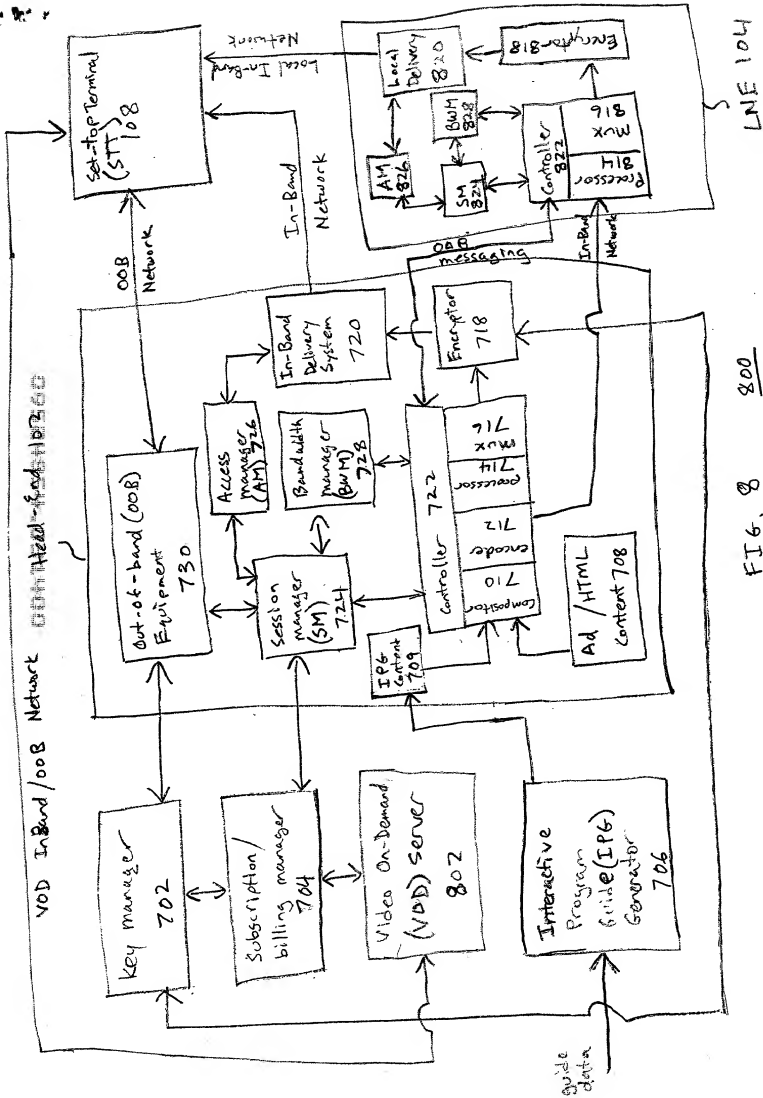 VOD InBand/OOB Network
Head-End 102
Key manager
702
Subscription/
billing manager
704
Video On-Demand
(VOD) Server
802
Interactive
Program
Guide (IPG)
Generator
706
guide
data
Out-of-band (OOB)
Equipment
730
Session
manager
(SM)
724
Access
manager
(AM) 726
Bandwidth
manager
(BWM)
728
In-Band
Delivery
System
720
IPG
Content
709
Controller 722
Compositor
710
encoder
712
processor
714
Mux
716
Encryptor
718
Ad / HTML
Content 708
OOB
Network
In-Band
Network
OOB
messaging
In-Band
Network
Set-top Terminal
(STT)
108
Local In-Band
Network
Local
Delivery
820
AM
826
BWM
828
SM
824
Controller
822
Processor
814
Mux
816
Encryptor 818
LNE 104
FIG. 8
800